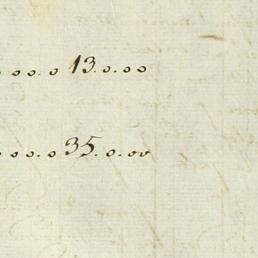 . o o. o 13. o. o o
o o o. o 35. o. o o